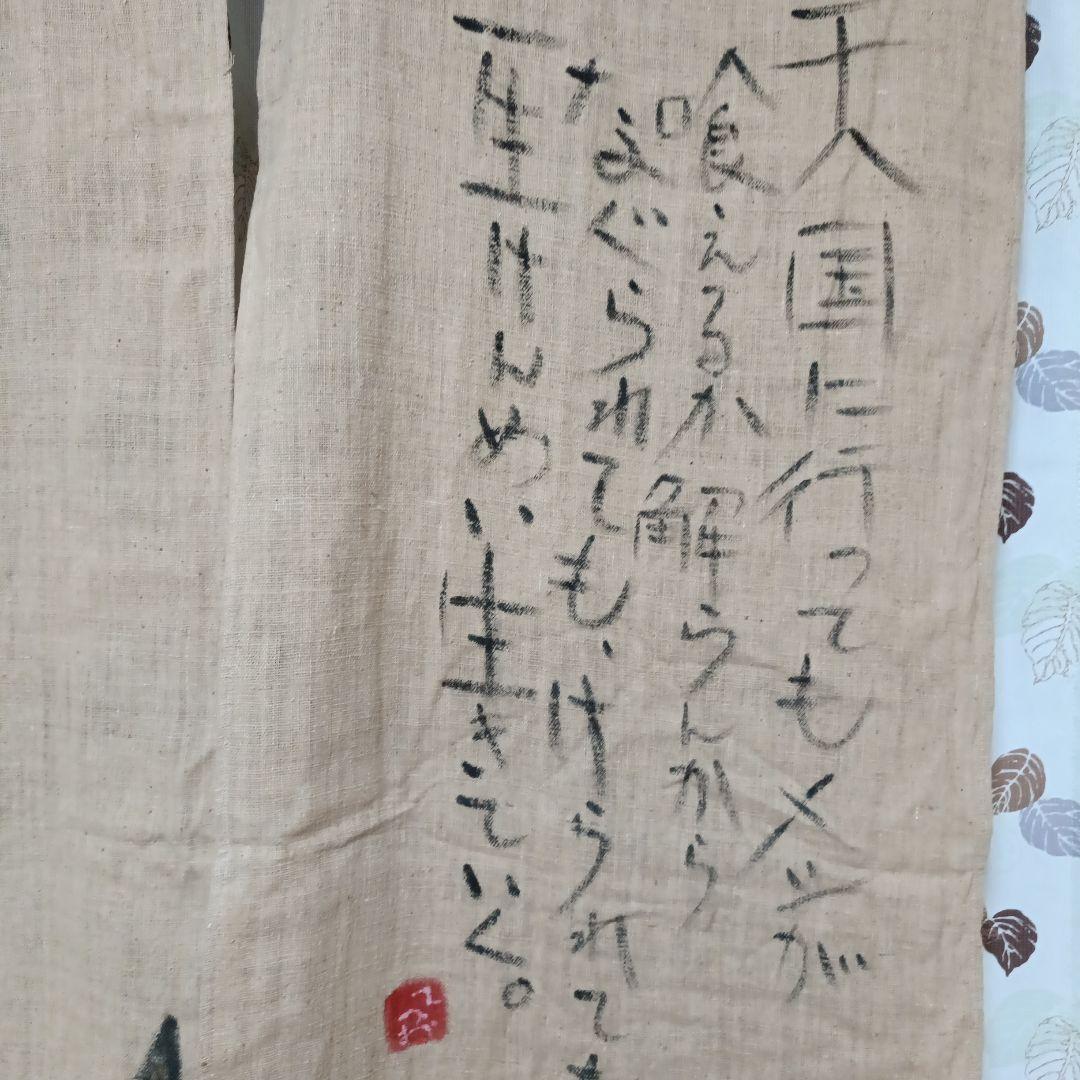 天国に行ってもメシが
喰えるか解らんから
なぐられても、けられても
一生けんめい生きていく。